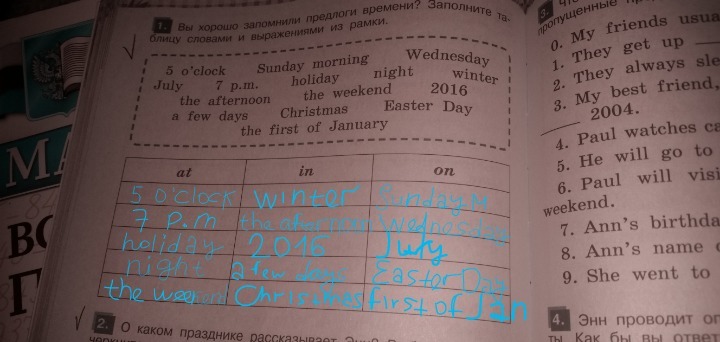 1. Вы хорошо запомнили предлоги времени? Заполните та-
блицу словами и выражениями из рамки.
5 o'clock Sunday morning Wednesday
July 7 p.m. holiday night winter
the afternoon the weekend 2016
a few days Christmas Easter Day
the first of January
at in on
5 o'clock winter Sunday M
7 P.m the afternoon Wednesday
holiday 2016 July
night a few days Easter Day
the weekend Christmas first of Jan
2. О каком празднике рассказывает
3.
пропущенные
0. My friends usua
1. They get up
2. They always sle
3. My best friend,
2004.
4. Paul watches ca
5. He will go to
6. Paul will visi
weekend.
7. Ann's birthda
8. Ann's name
9. She went to
4. Энн проводит
Как бы вы ответ
МА
ВС